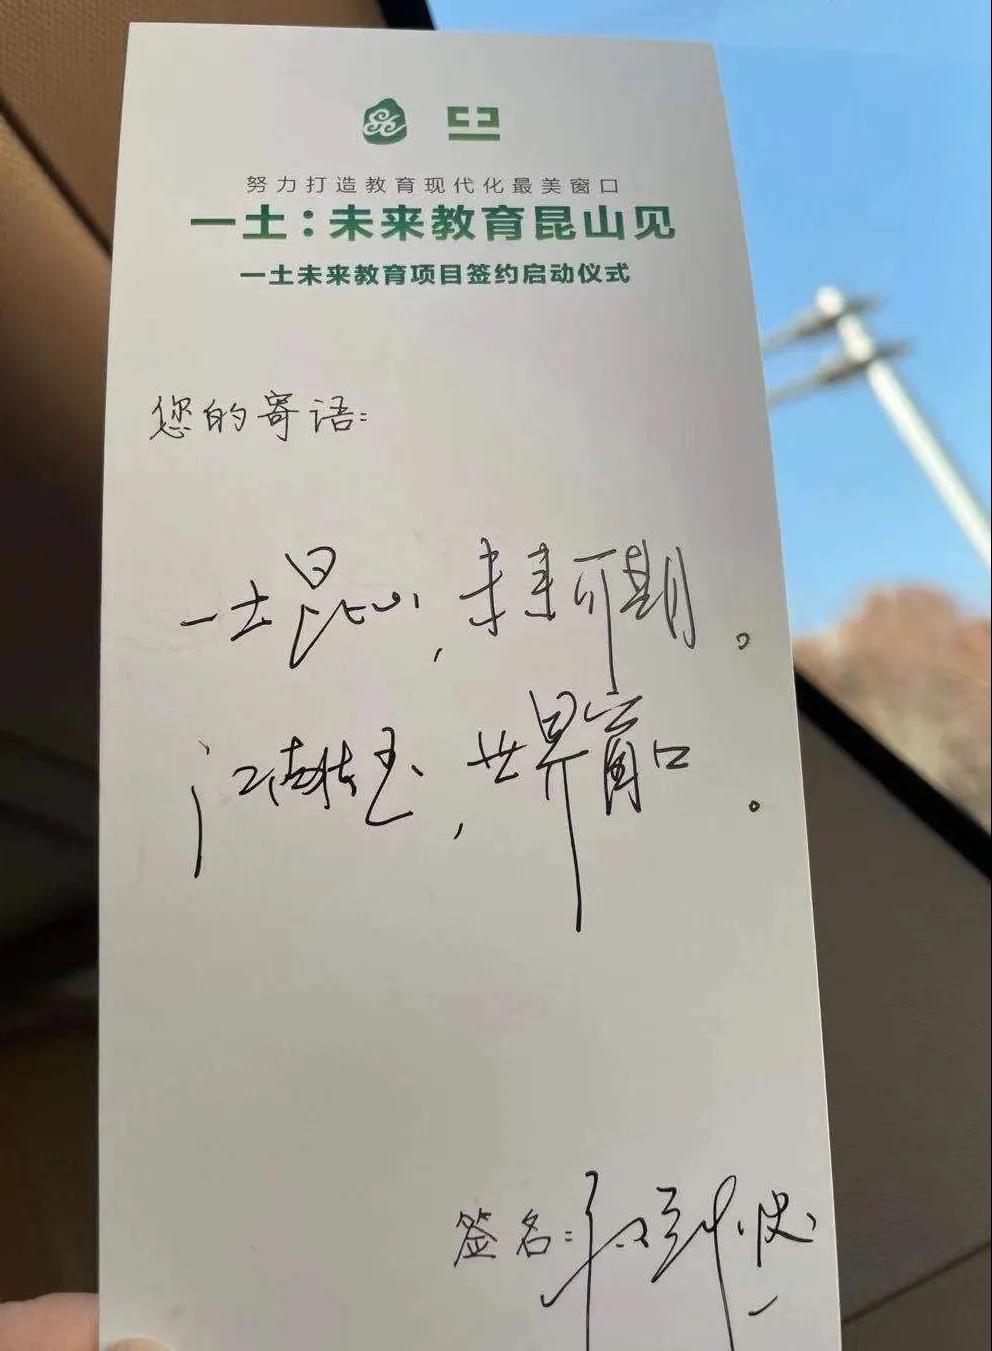 努力打造教育现代化最美窗口
一土：未来教育昆山见
一土未来教育项目签约启动仪式
您的寄语：
一土昆山，未来可期。
世界窗口。
签名：